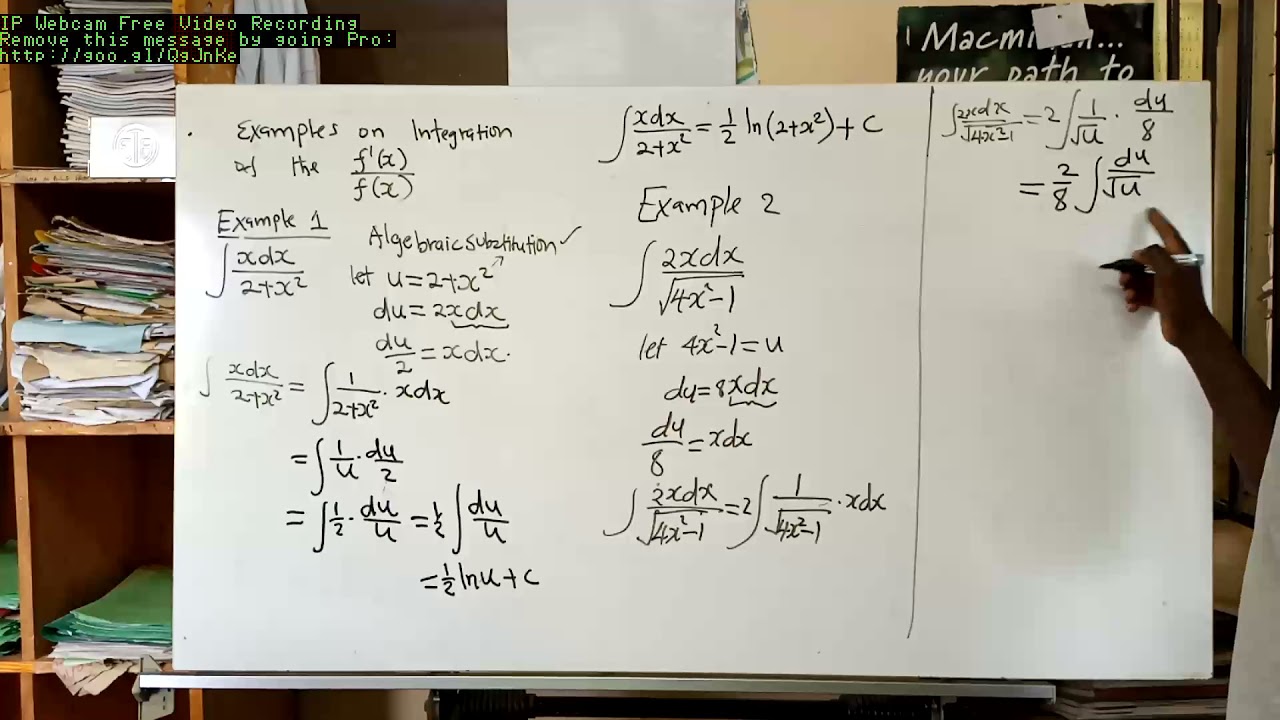 IP Webcam Free Video Recording
Remove this message by going Pro:
http://goo.gl/QgJnKe
Macmi
your path to
Examples on Integration
of the f'(x)/f(x)
Example 1
∫ xdx/(2+x²)
Algebraic substitution ✓
let u = 2+x²
du = 2xdx
du/2 = xdx.
∫ xdx/(2+x²) = ∫ 1/(2+x²) · xdx
= ∫ 1/u · du/2
= ∫ 1/2 · du/u = 1/2 ∫ du/u
= 1/2 ln u + c
∫ xdx/(2+x²) = 1/2 ln(2+x²) + c
Example 2
∫ 2xdx/√(4x²-1)
let 4x²-1 = u
du = 8xdx
du/8 = xdx
∫ 2xdx/√(4x²-1) = 2 ∫ 1/√(4x²-1) · xdx
∫ 2xdx/√(4x²-1) = 2 ∫ 1/√u · du/8
= 2/8 ∫ du/√u